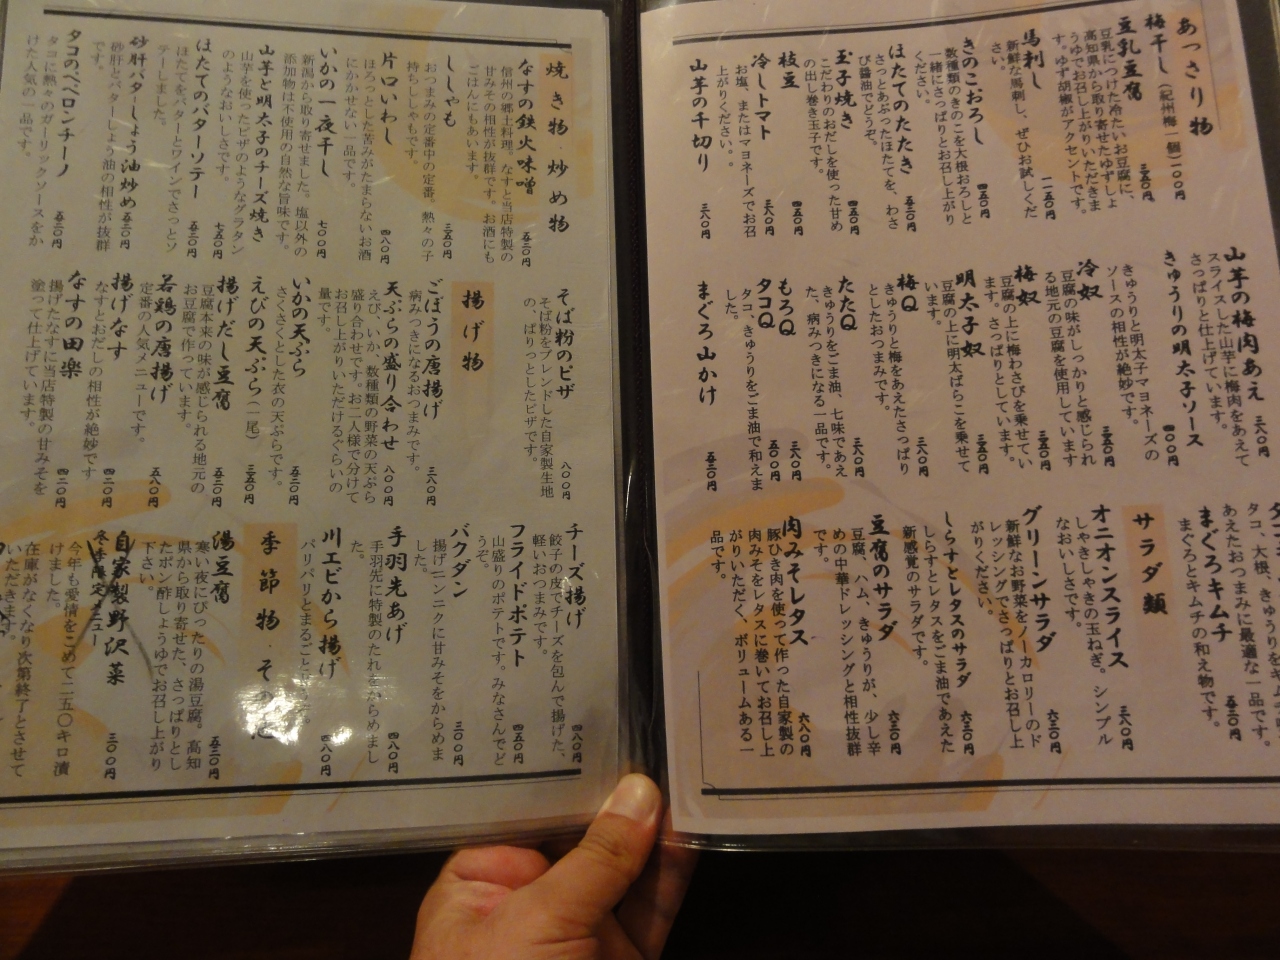 あっさり物
梅干し(紀州梅一個)二〇〇円
豆乳豆腐 三五〇円
豆乳につけた冷たいお豆腐に、
高知県から取り寄せたゆずしょ
うゆでお召し上がりいただきま
す。ゆず胡椒がアクセントです。
馬刺し 一一五〇円
新鮮な馬刺し、ぜひお試しくだ
さい。
きのこおろし 四五〇円
数種類のきのこを大根おろしと
一緒にさっぱりとお召し上がり
ください。
ほたてのたたき 五三〇円
さっとあぶったほたてを、わさ
び醤油でどうぞ。
玉子焼き 四五〇円
こだわりのおだしを使った甘め
の出し巻き玉子です。
枝豆 四五〇円
冷しトマト 三八〇円
お塩、またはマヨネーズでお召
上がりください。
山芋の千切り 三八〇円
山芋の梅肉あえ 三八〇円
スライスした山芋に梅肉をあえて
さっぱりと仕上げています。
きゅうりの明太子ソース
きゅうりと明太子マヨネーズの
ソースの相性が絶妙です。
冷奴 三五〇円
豆腐の味がしっかりと感じられ
る地元の豆腐を使用しています
梅奴 三五〇円
豆腐の上に梅わさびを乗せてい
ます。さっぱりとしています。
明太子奴 三五〇円
豆腐の上に明太ばらこを乗せて
います。
梅Q 三八〇円
きゅうりと梅をあえたさっぱり
としたおつまみです。
たたQ 三八〇円
きゅうりをごま油、七味であえ
た、病みつきになる一品です。
もろQ 三八〇円
タコQ 五〇〇円
タコ、きゅうりをごま油で和えま
した。
まぐろ山かけ 五三〇円
タコ、大根、きゅうりを
あえたおつまみに最適な一品です。
まぐろキムチ 五三〇円
まぐろとキムチの和え物です。
サラダ類
オニオンスライス 三八〇円
しゃきしゃきの玉ねぎ。シンプル
なおいしさです。
グリーンサラダ 六三〇円
新鮮なお野菜をノーカロリーのド
レッシングでさっぱりとお召し上
がりください。
しらすとレタスのサラダ 六三〇円
しらすとレタスをごま油であえた
新感覚のサラダです。
豆腐のサラダ 六三〇円
豆腐、ハム、きゅうりが、少し辛
めの中華ドレッシングと相性抜群
です。
肉みそレタス 六八〇円
豚ひき肉を使って作った自家製の
肉みそをレタスに巻いてお召し上
がりいただく、ボリュームある一
品です。
焼き物・炒め物
なすの鉄火味噌 五三〇円
信州の郷土料理。なすと当店特製の
甘みその相性が抜群です。お酒にも
ごはんにもあいます。
ししゃも 三五〇円
おつまみの定番中の定番。熱々の子
持ちししゃもです。
片口いわし 四八〇円
ほろっとした苦みがたまらないお酒
にかかせない一品です。
いかの一夜干し 七〇〇円
新潟から取り寄せました。塩以外の
添加物は不使用の自然な旨味です。
山芋と明太子のチーズ焼き
山芋を使ったピザのようなグラタン
のようなおいしさです。 七五〇円
ほたてのバターソテー 五三〇円
ほたてをバターとワインでさっとソ
テーしました。
砂肝バターしょう油炒め 五三〇円
砂肝とバターしょう油の相性が抜群
です。
タコのペペロンチーノ 五三〇円
タコに熱々のガーリックソースをか
けた人気の一品です。
そば粉のピザ 八〇〇円
そば粉をブレンドした自家製生地
の、ぱりっとしたピザです。
揚げ物
ごぼうの唐揚げ 三八〇円
病みつきになるおつまみです。
天ぷらの盛り合わせ 八〇〇円
えび、いか、数種類の野菜の天ぷら
盛り合わせです。お二人様で分けて
お召し上がりいただけるぐらいの
量です。
いかの天ぷら 五三〇円
さくさくとした衣の天ぷらです。
えびの天ぷら(一尾) 三五〇円
揚げだし豆腐 五三〇円
豆腐本来の味が感じられる地元の
お豆腐で作っています。
若鶏の唐揚げ 五八〇円
定番の人気メニューです。
揚げなす 四三〇円
なすとおだしの相性が絶妙です
なすの田楽 四三〇円
揚げたなすに当店特製の甘みそを
塗って仕上げています。
チーズ揚げ 四八〇円
餃子の皮でチーズを包んで揚げた、
軽いおつまみです。
フライドポテト 四五〇円
山盛りのポテトです。みなさんでど
うぞ。
バクダン 三〇〇円
揚げニンニクに甘みそをからめま
した。
手羽先あげ 四八〇円
手羽先に特製のたれをからめまし
た。
川エビから揚げ 四八〇円
パリパリとまるごと
季節物・その他
湯豆腐 五三〇円
寒い夜にぴったりの湯豆腐。高知
県から取り寄せた、さっぱりとし
たポン酢しょうゆでお召し上がり
下さい。
自家製野沢菜 三〇〇円
冬季限定メニュー
今年も愛情をこめて二五〇キロ漬
けました。
在庫がなくなり次第終了とさせて
いただきます。